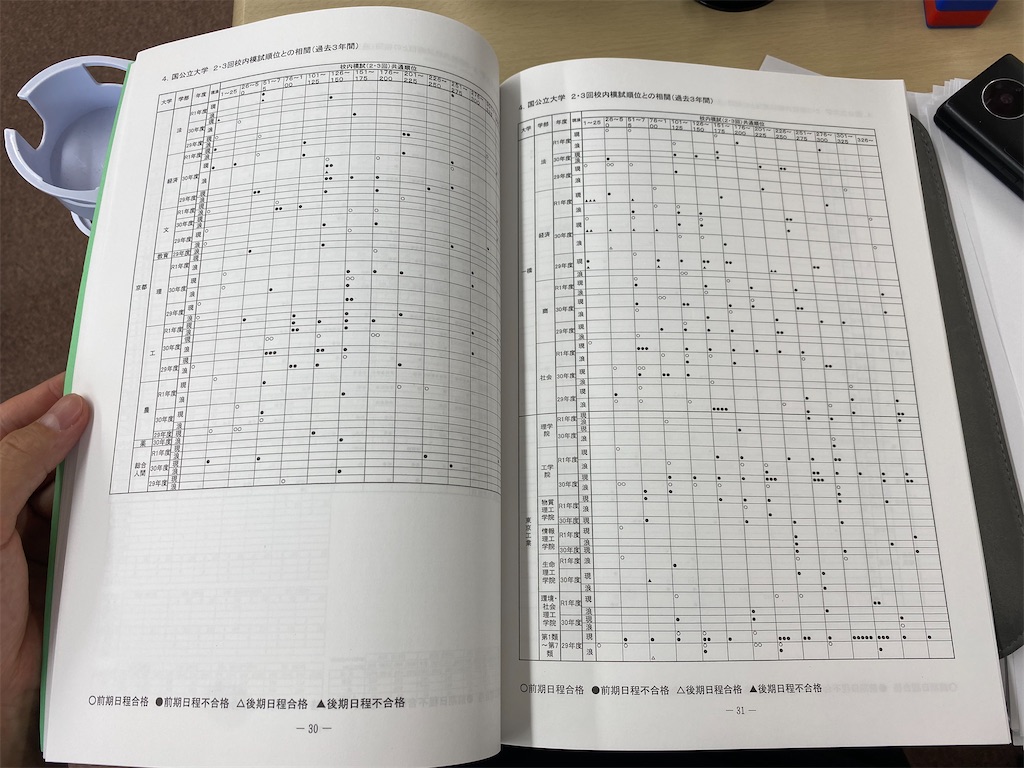 4. 国公立大学 2・3回校内模試順位との相関(過去3年間)
校内模試(2・3回)共通順位
大学 学部 年度 1〜25 26〜50 51〜75 76〜100 101〜125 126〜150 151〜175 176〜200 201〜225 226〜250
京都
法 R1年度 現 浪
30年度 現 浪
29年度 現 浪
経済 R1年度 現 浪
30年度 現 浪
29年度 現 浪
文 R1年度 現 浪
30年度 現 浪
29年度 現 浪
教育 29年度
理 R1年度 現 浪
30年度 現 浪
29年度 現 浪
工 R1年度 現 浪
30年度 現 浪
29年度 現 浪
農 R1年度 現 浪
30年度 現 浪
29年度
薬 30年度
総合人間 R1年度 現 浪
30年度 現 浪
29年度 浪
○前期日程合格 ●前期日程不合格 △後期日程合格 ▲後期日程不合格
― 30 ―
4. 国公立大学 2・3回校内模試順位との相関(過去3年間)
校内模試(2・3回)共通順位
大学 学部 年度 1〜25 26〜50 51〜75 76〜100 101〜125 126〜150 151〜175 176〜200 201〜225 226〜250 251〜275 276〜300 301〜325 326〜
一橋
法 R1年度 現 浪
30年度 現 浪
29年度 現 浪
経済 R1年度 現 浪
30年度 現 浪
29年度 現 浪
商 R1年度 現 浪
30年度 現 浪
29年度 現 浪
社会 R1年度 現 浪
30年度 現 浪
29年度 現 浪
東京工業
理学院 R1年度 現 浪
30年度 現 浪
工学院 R1年度 現 浪
30年度 現 浪
物質理工学院 R1年度 現 浪
30年度 現 浪
情報理工学院 R1年度 現 浪
30年度 現 浪
生命理工学院 R1年度 現 浪
30年度 現 浪
環境・社会理工学院 R1年度 現 浪
30年度 現 浪
第1類〜第7類 29年度 現 浪
○前期日程合格 ●前期日程不合格 △後期日程合格 ▲後期日程不合格
― 31 ―